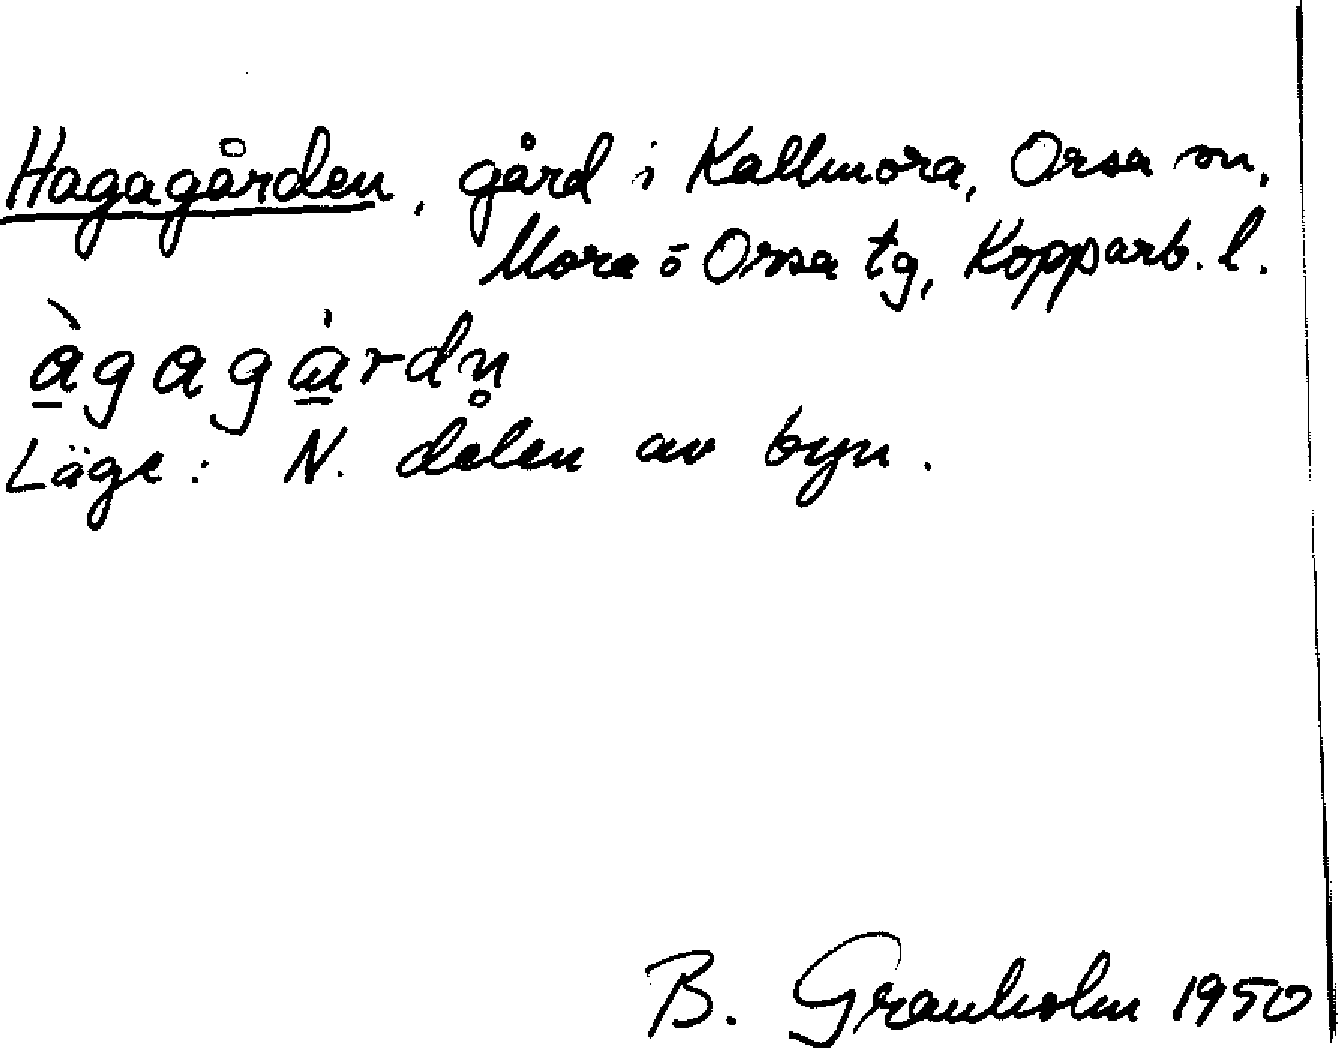 Hagagården, gård i Kallmora, Orsa sn,
Mora o Orsa tg, Kopparb. l.
àgagàrdn̥
Läge: N. delen av byn.
B. Granholm 1950